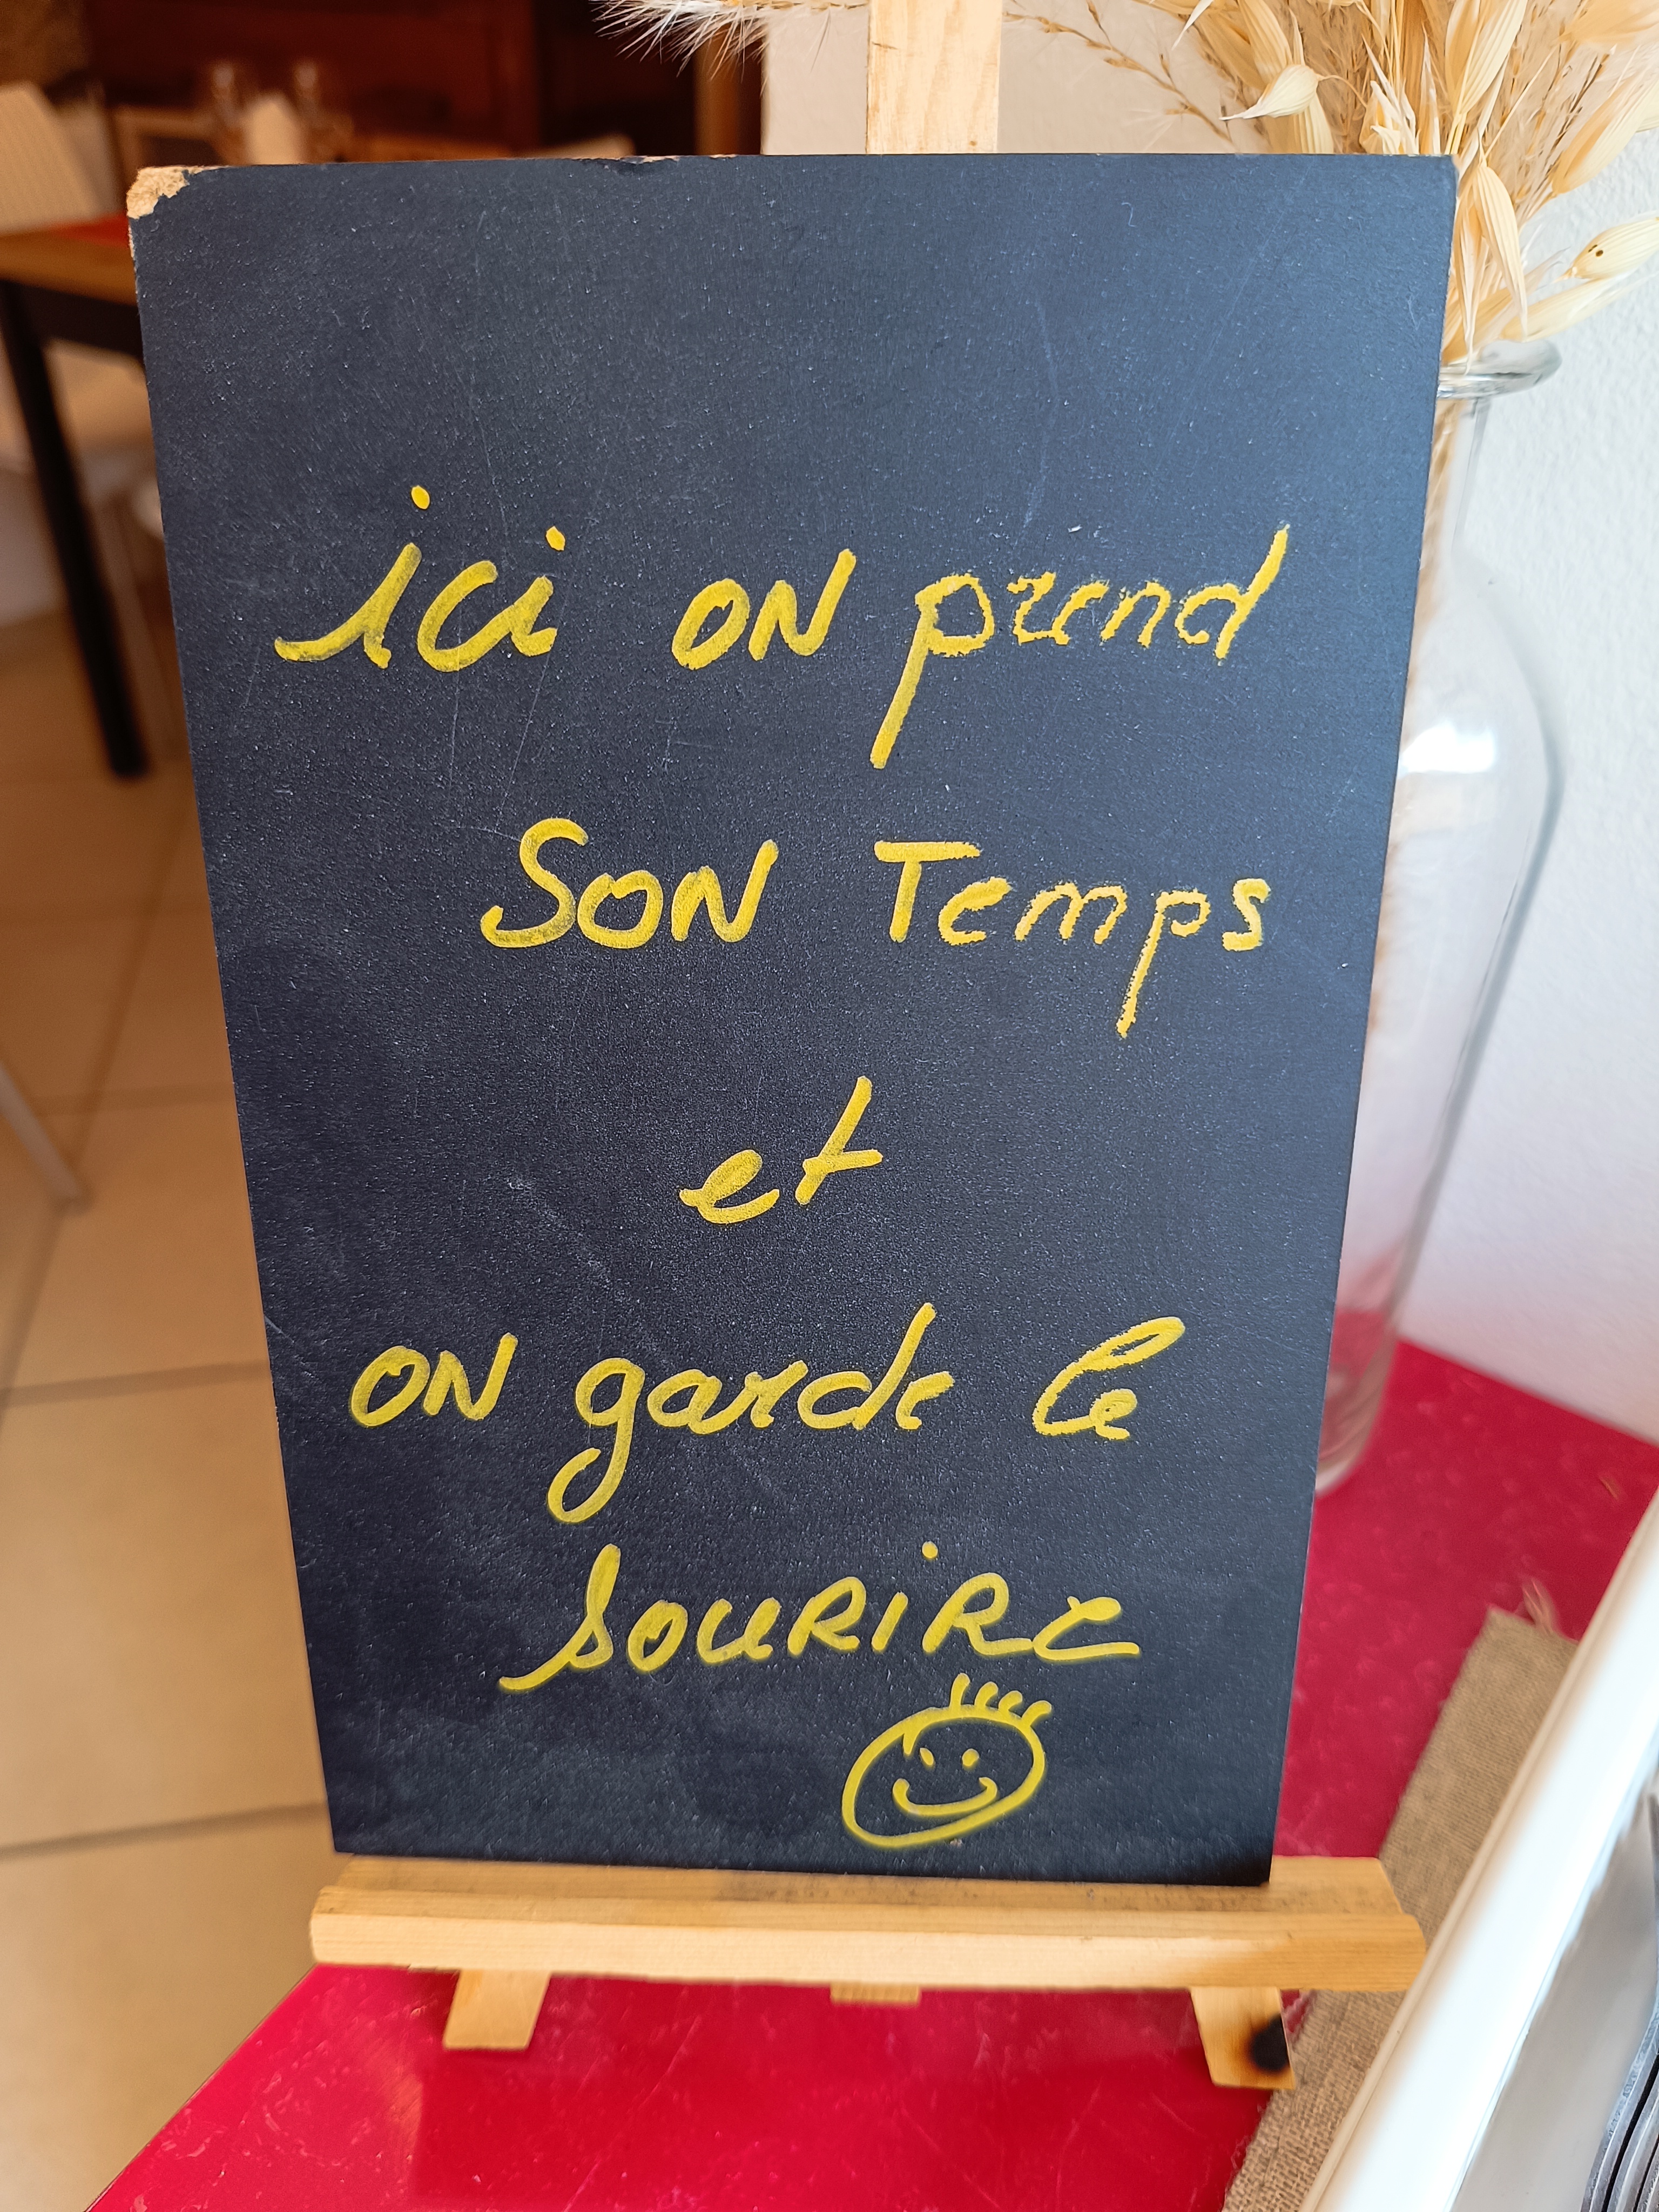 ici on prend
Son Temps
et
on garde le
sourire